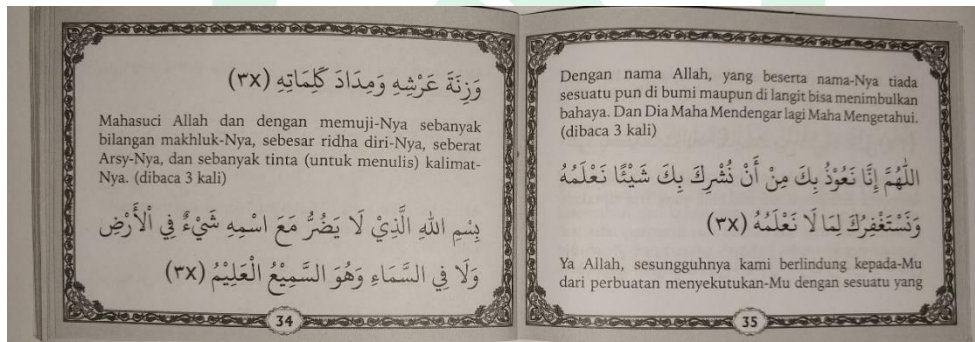 وَزِنَةَ عَرْشِهِ وَمِدَادَ كَلِمَاتِهِ (٣X)
Mahasuci Allah dan dengan memuji-Nya sebanyak
bilangan makhluk-Nya, sebesar ridha diri-Nya, seberat
Arsy-Nya, dan sebanyak tinta (untuk menulis) kalimat-
Nya. (dibaca 3 kali)
بِسْمِ اللهِ الَّذِيْ لَا يَضُرُّ مَعَ اسْمِهِ شَيْءٌ فِي الْأَرْضِ
وَلَا فِي السَّمَاءِ وَهُوَ السَّمِيْعُ الْعَلِيْمُ (٣X)
34
Dengan nama Allah, yang beserta nama-Nya tiada
sesuatu pun di bumi maupun di langit bisa menimbulkan
bahaya. Dan Dia Maha Mendengar lagi Maha Mengetahui.
(dibaca 3 kali)
اللّٰهُمَّ إِنَّا نَعُوْذُ بِكَ مِنْ أَنْ نُشْرِكَ بِكَ شَيْئًا نَعْلَمُهُ
وَنَسْتَغْفِرُكَ لِمَا لَا نَعْلَمُهُ (٣X)
Ya Allah, sesungguhnya kami berlindung kepada-Mu
dari perbuatan menyekutukan-Mu dengan sesuatu yang
35